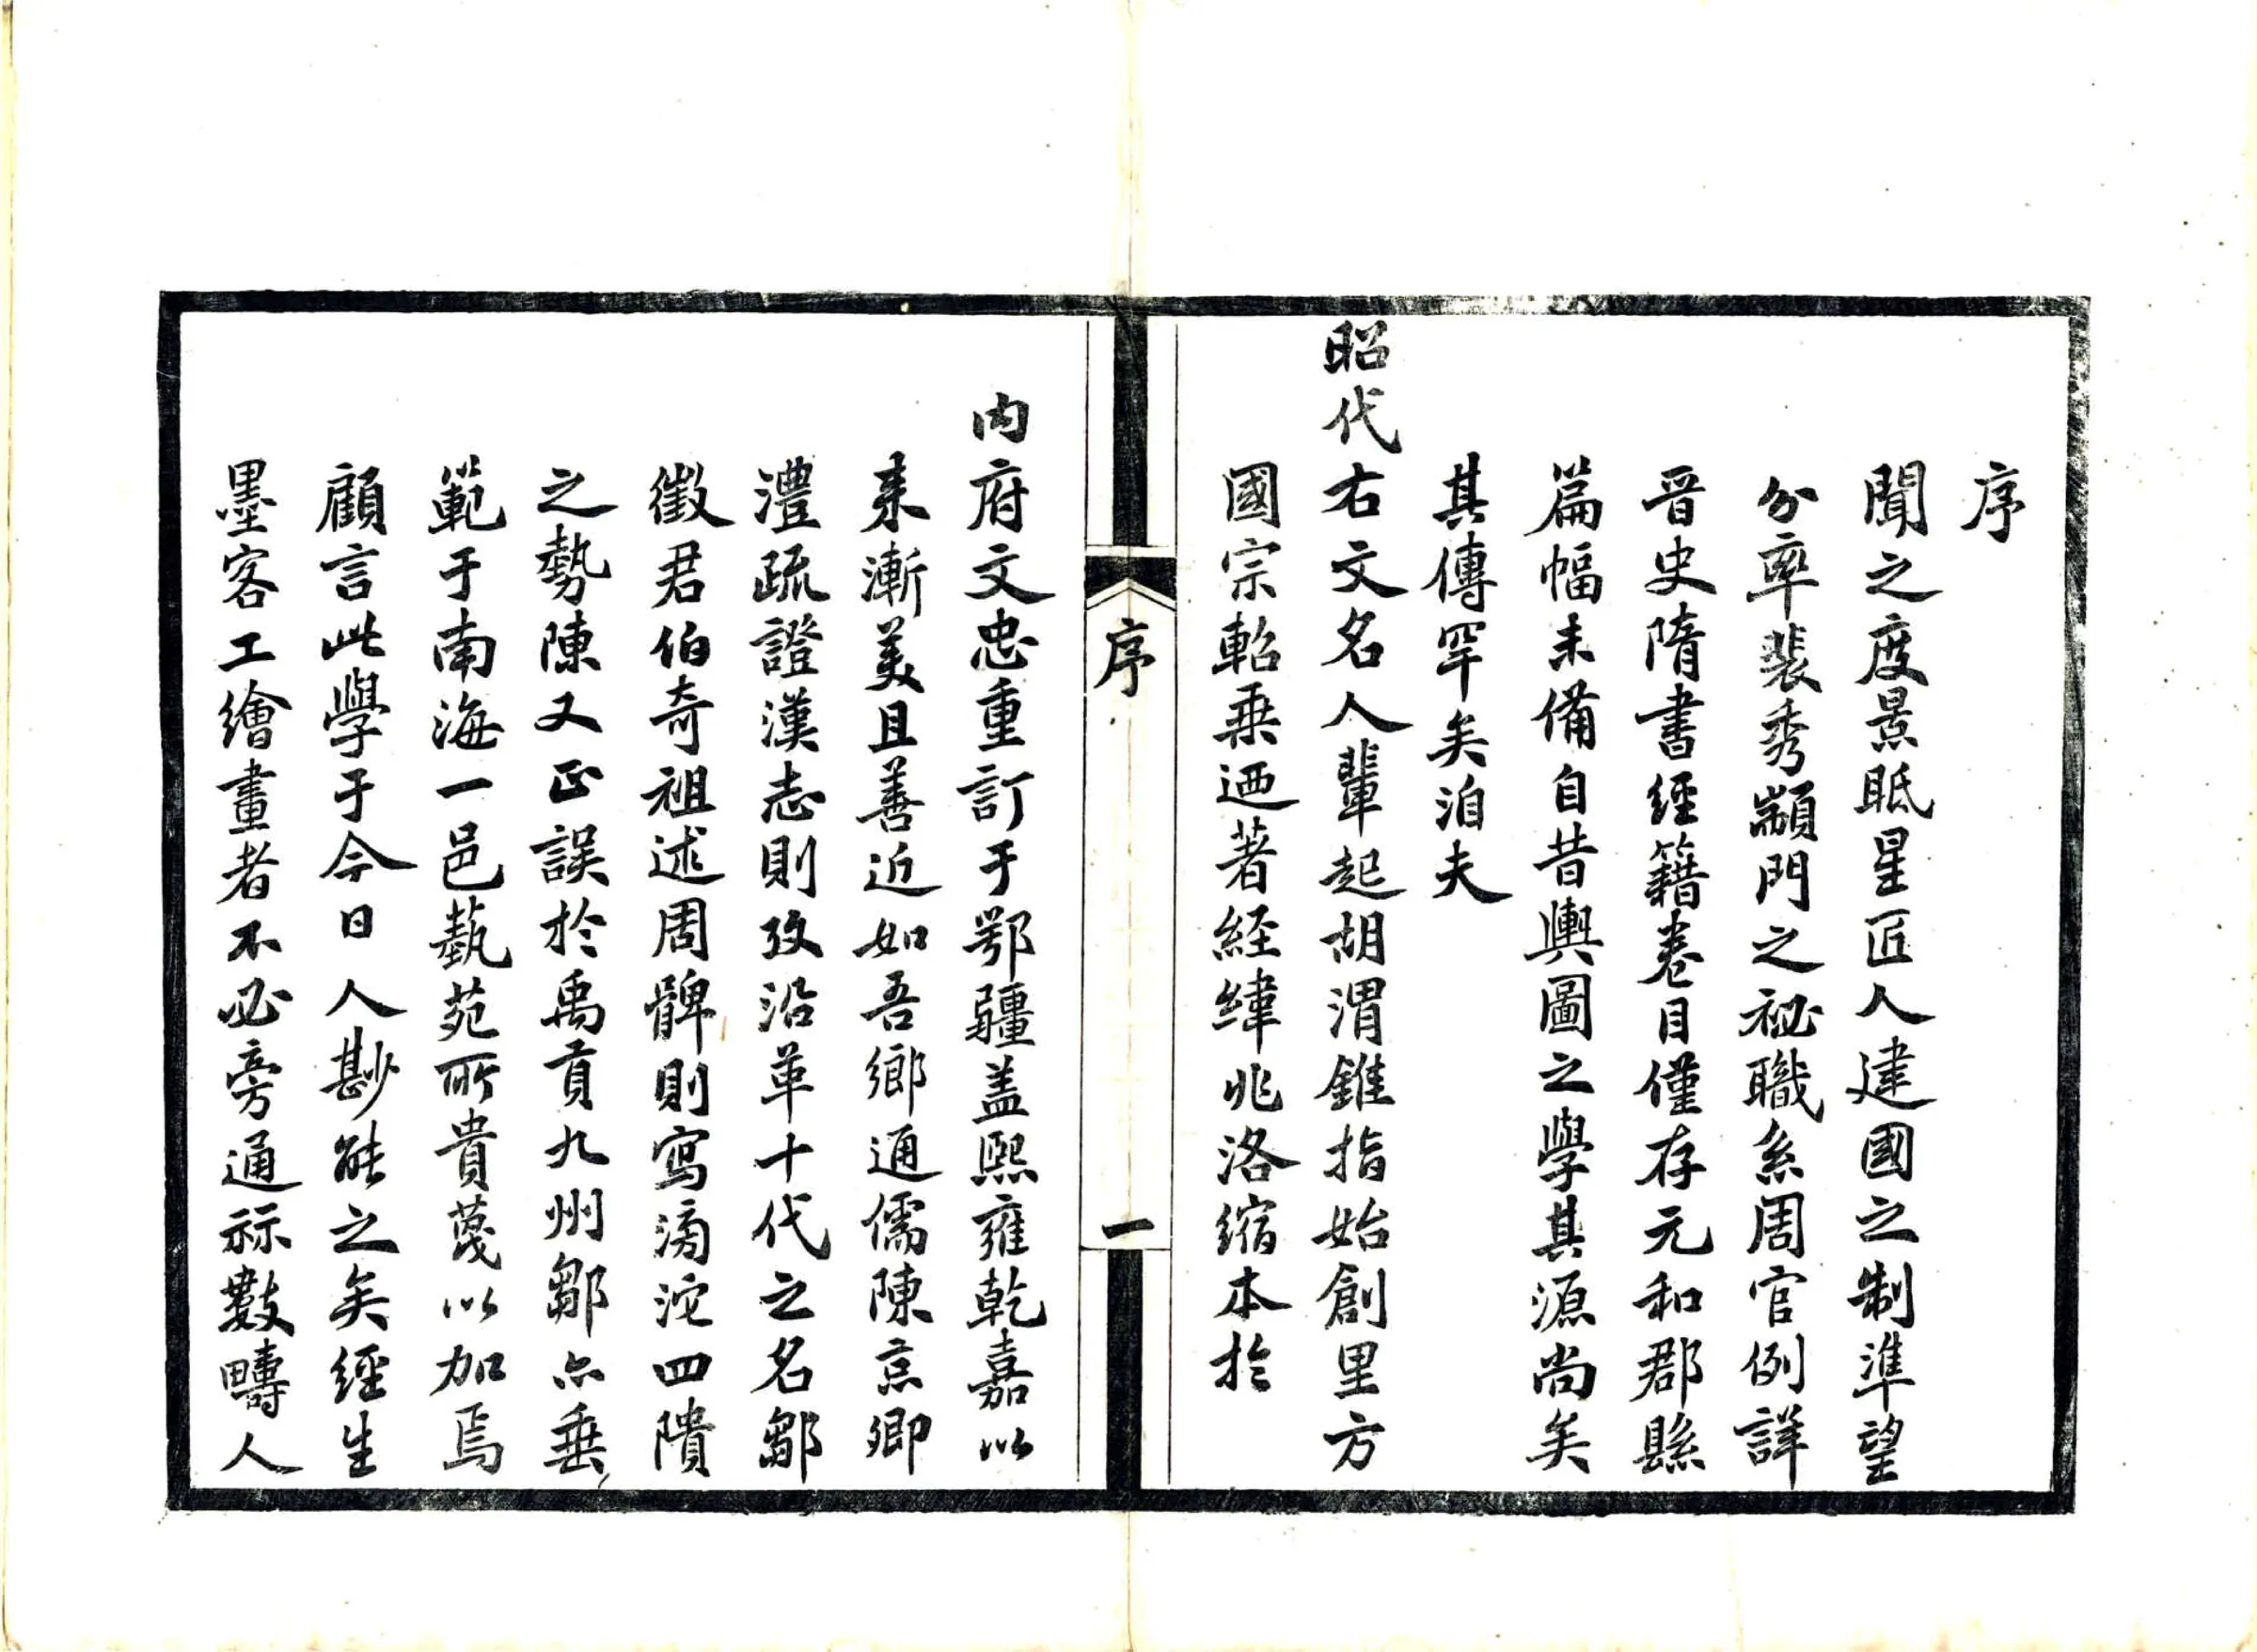 序
聞之度景眂星匠人建國之制準望
分率裴秀顓門之祕職系周官例詳
晉史隋書經籍卷目僅存元和郡縣
篇幅未備自昔輿圖之學其源尚矣
其傳罕矣洎夫
昭代右文名人輩起胡渭錐指始創里方
國宗軺乗迺著経緯兆洛縮本於
序
一
内府文忠重訂于鄂疆盖熙雍乾嘉以
来漸美且善近如吾鄉通儒陳京卿
澧疏證漢志則攷沿革十代之名鄒
徵君伯奇祖述周髀則寫渹沱四隤
之勢陳又正誤於禹貢九州鄒亦垂
範于南海一邑藝苑所貴蔑以加焉
顧言此學于今日人尠能之矣經生
墨客工繪畫者不必旁通祘數疇人